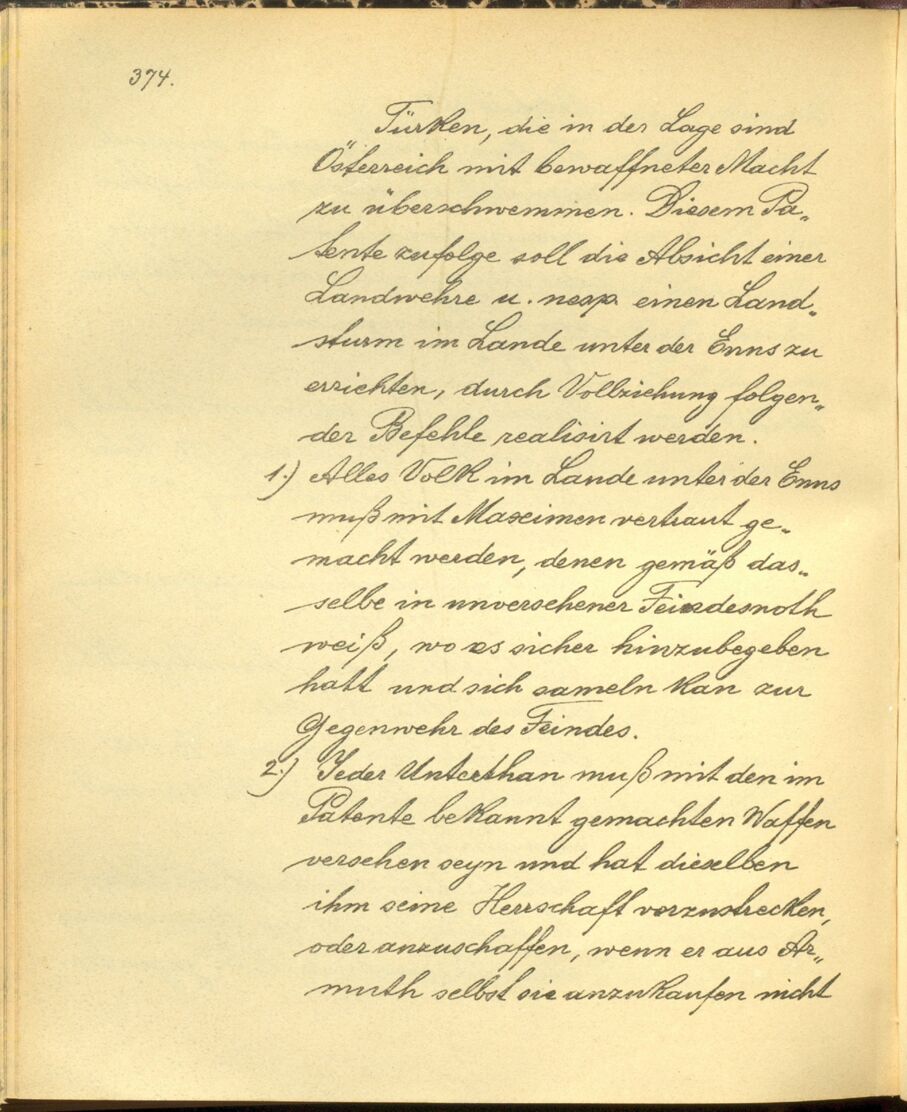 374.
Türken, die in der Lage sind
Österreich mit bewaffneter Macht
zu überschwemmen. Diesem Pa„
tente zufolge soll die Absicht einer
Landwehre u. resp. einen Land„
sturm im Lande unter der Enns zu
errichten, durch Vollziehung folgen„
der Befehle realisirt werden.
1.) Alles Volk im Lande unter der Enns
muß mit Maximen vertraut ge„
macht werden, denen gemäß das„
selbe in unversehener Feindesnoth
weiß, wo es sicher hinzubegeben
hatt und sich sameln kan zur
Gegenwehr des Feindes.
2.) Jeder Unterthan muß mit den im
Patente bekannt gemachten Waffen
versehen seyn und hat dieselben
ihm seine Herrschaft vorzustrecken,
oder anzuschaffen, wenn er aus Ar„
muth selbst sie anzukaufen nicht